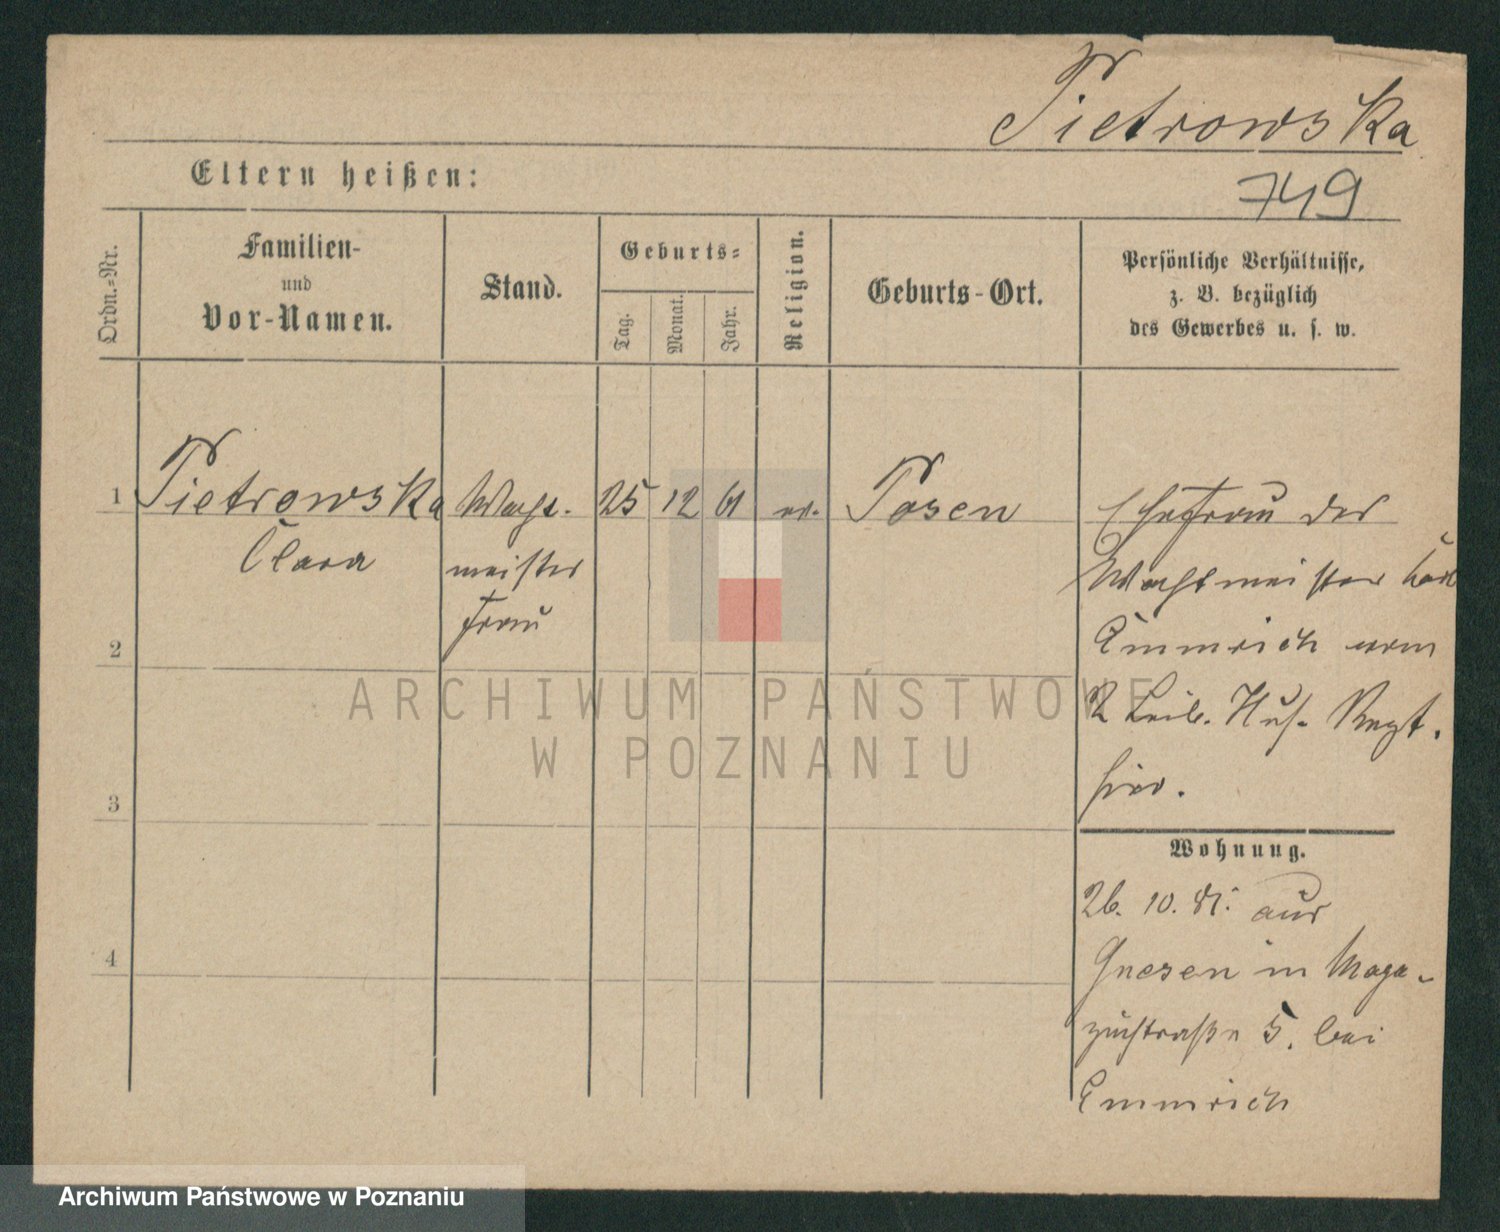 Pietrowska
Eltern heißen:
749
Ordn.-Nr.
Familien-
und
Vor-Namen.
Stand.
Geburts-
Tag.
Monat.
Jahr.
Religion.
Geburts-Ort.
Persönliche Verhältnisse,
z. B. bezüglich
des Gewerbes u. s. w.
1
Pietrowska
Clara
Wacht-
meister
frau
25
12
61
ev.
Posen
Ehefrau des
Wachtmeister Carl
Emmrich vom
2 Leib. Hus. Regt.
hier.
2
3
4
Wohnung.
26. 10. 81. aus
Gnesen in Maga-
zinstraße 5. bei
Emmrich
ARCHIWUM PAŃSTWOWE
W POZNANIU
Archiwum Państwowe w Poznaniu